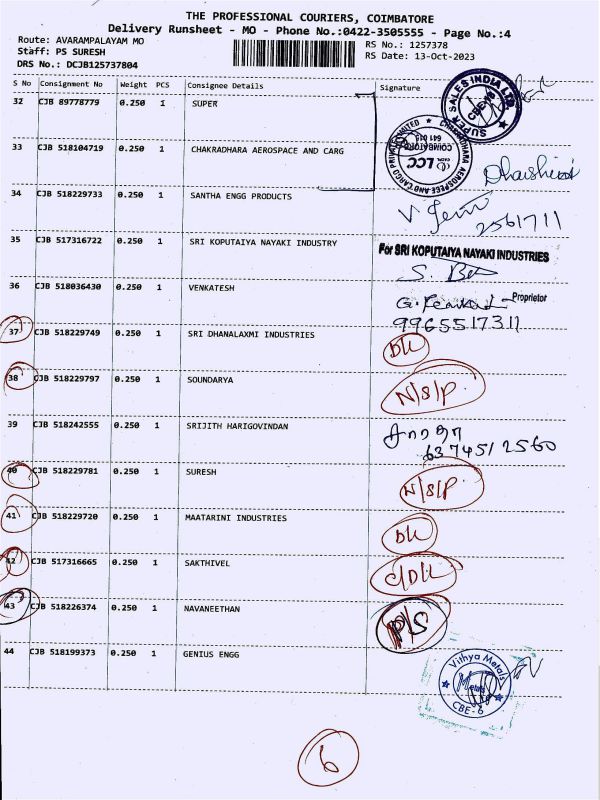 THE PROFESSIONAL COURIERS, COIMBATORE
Delivery Runsheet - MO - Phone No.:0422-3505555 - Page No.:4
Route: AVARAMPALAYAM MO
RS No.: 1257378
Staff: PS SURESH
RS Date: 13-Oct-2023
DRS No.: DCJB125737804
S No Consignment No Weight PCS Consignee Details Signature
32 CJB 89778779 0.250 1 SUPER
SUPER SALES INDIA LTD. CBE
33 CJB 518104719 0.250 1 CHAKRADHARA AEROSPACE AND CARG
CHAKRADHARA AEROSPACE AND CARGO PRIVATE LIMITED LCC COIMBATORE 641
34 CJB 518229733 0.250 1 SANTHA ENGG PRODUCTS
2561711
35 CJB 517316722 0.250 1 SRI KOPUTAIYA NAYAKI INDUSTRY
For SRI KOPUTAIYA NAYAKI INDUSTRIES
Proprietor
36 CJB 518036430 0.250 1 VENKATESH
9965517311
37 CJB 518229749 0.250 1 SRI DHANALAXMI INDUSTRIES DK
38 CJB 518229797 0.250 1 SOUNDARYA N/S/P
39 CJB 518242555 0.250 1 SRIJITH HARIGOVINDAN
6374512560
40 CJB 518229781 0.250 1 SURESH N/S/P
41 CJB 518229720 0.250 1 MAATARINI INDUSTRIES DK
42 CJB 517316665 0.250 1 SAKTHIVEL C/DK
43 CJB 518226374 0.250 1 NAVANEETHAN P/S
44 CJB 518199373 0.250 1 GENIUS ENGG
Vithya Metals CBE-6
6